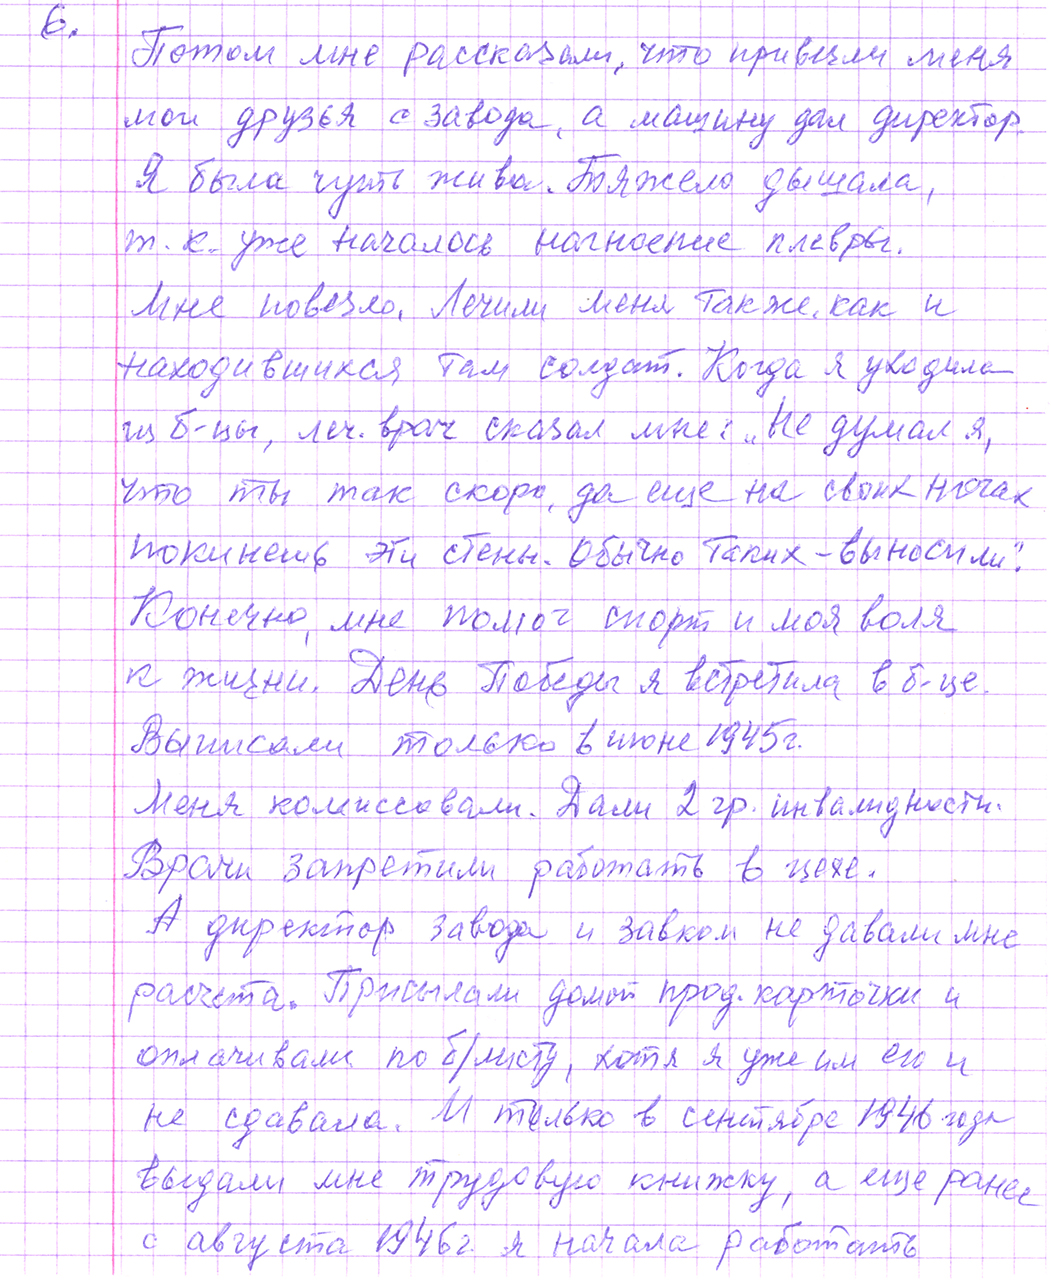 6.
Потом мне рассказали, что привезли меня
мои друзья с завода, а машину дал директор.
Я была чуть жива. Тяжело дышала,
т.к. уже началось нагноение плевры.
Мне повезло. Лечили меня также, как и
находившихся там солдат. Когда я уходила
из б-цы, леч. врач сказал мне: „Не думал я,
что ты так скоро, да еще на своих ногах
покинешь эти стены. Обычно таких – выносили".
Конечно, мне помог спорт и моя воля
к жизни. День Победы я встретила в б-це.
Выписали только в июне 1945г.
Меня комиссовали. Дали 2 гр. инвалидности.
Врачи запретили работать в цехе.
А директор завода и завком не давали мне
расчета. Присылали домой прод. карточки и
оплачивали по б/листу, хотя я уже им его и
не сдавала. И только в сентябре 1946 года
выдали мне трудовую книжку, а еще ранее
с августа 1946г. я начала работать